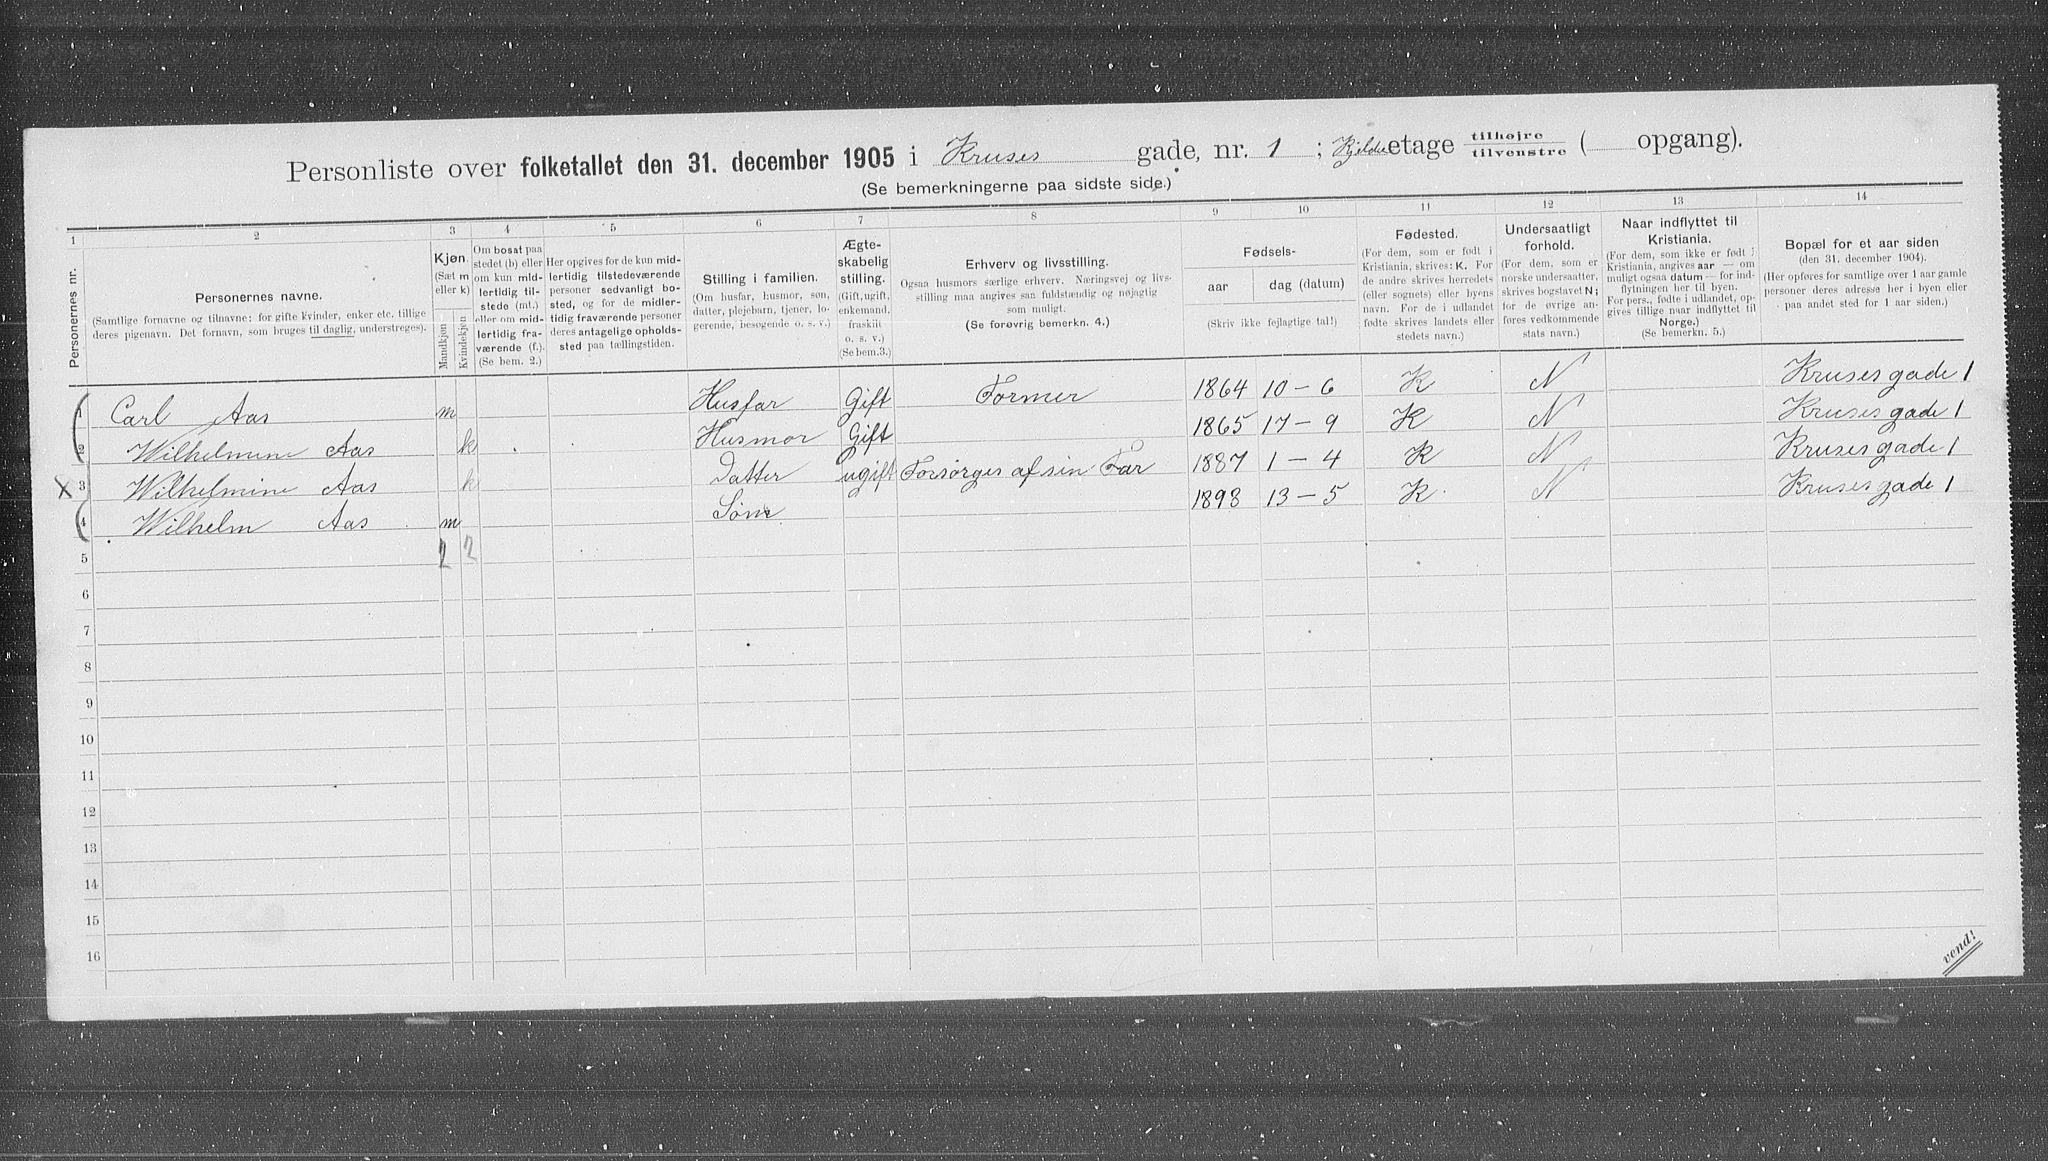 Personliste over folketallet den 31. december 1905 i Kruses gade, nr. 1 ; Kjelder etage tilhøjre / tilvenstre ( opgang).
(Se bemerkningerne paa sidste side.)
1 2 3 4 5 6 7 8 9 10 11 12 13 14
Personernes nr.
Personernes navne.
(Samtlige fornavne og tilnavne: for gifte kvinder, enker etc. tillige
deres pigenavn. Det fornavn, som bruges til daglig, understreges).
Kjøn.
(Sæt m
eller k)
Mandkjøn
Kvindekjøn
Om bosat paa
stedet (b) eller
om kun mid-
lertidig til-
stede (mt.)
eller om mid-
lertidig fra-
værende (f.).
(Se bem. 2.)
Her opgives for de kun mid-
lertidig tilstedeværende
personer sedvanligt bo-
sted, og for de midler-
tidig fraværende personer
deres antagelige opholds-
sted paa tællingstiden.
Stilling i familien.
(Om husfar, husmor, søn,
datter, plejebarn, tjener, lo-
gerende, besøgende o. s. v.)
Ægte-
skabelig
stilling.
(Gift, ugift,
enkemand,
fraskilt
o. s. v.)
(Se bem.3.)
Erhverv og livsstilling.
Ogsaa husmors særlige erhverv. Næringsvej og livs-
stilling maa angives saa fuldstændig og nøjagtig
som muligt.
(Se forøvrig bemerkn. 4.)
Fødsels-
aar dag (datum)
(Skriv ikke fejlagtige tal!)
Fødested.
(For dem, som er født i
Kristiania, skrives: K. For
de andre skrives herredets
(eller sognets) eller byens
navn. For de i udlandet
fødte skrives landets eller
stedets navn.)
Undersaatligt
forhold.
(For dem, som er
norske undersaatter,
skrives bogstavet N;
for de øvrige an-
føres vedkommende
stats navn.)
Naar indflyttet til
Kristiania.
(For dem, som ikke er født i
Kristiania, angives aar — om
muligt ogsaa datum — for ind-
flytningen her til byen.
For pers., fødte i udlandet, op-
gives tillige naar indflyttet til
Norge.)
(Se bemerkn. 5.)
Bopæl for et aar siden
(den 31. december 1904).
(Her opføres for samtlige over 1 aar gamle
personer deres adresse her i byen eller
paa andet sted for 1 aar siden.)
1 Carl Aas m Husfar Gift Former 1864 10 – 6 K N Kruses gade 1
2 Wilhelmine Aas k Husmor Gift 1865 17 – 9 K N Kruses gade 1
X 3 Wilhelmine Aas k Datter ugift Forsørges af sin Far 1887 1 – 4 K N Kruses gade 1
4 Wilhelm Aas m Søn 1898 13 – 5 K N Kruses gade 1
5 2 2
6
7
8
9
10
11
12
13
14
15
16
vend!